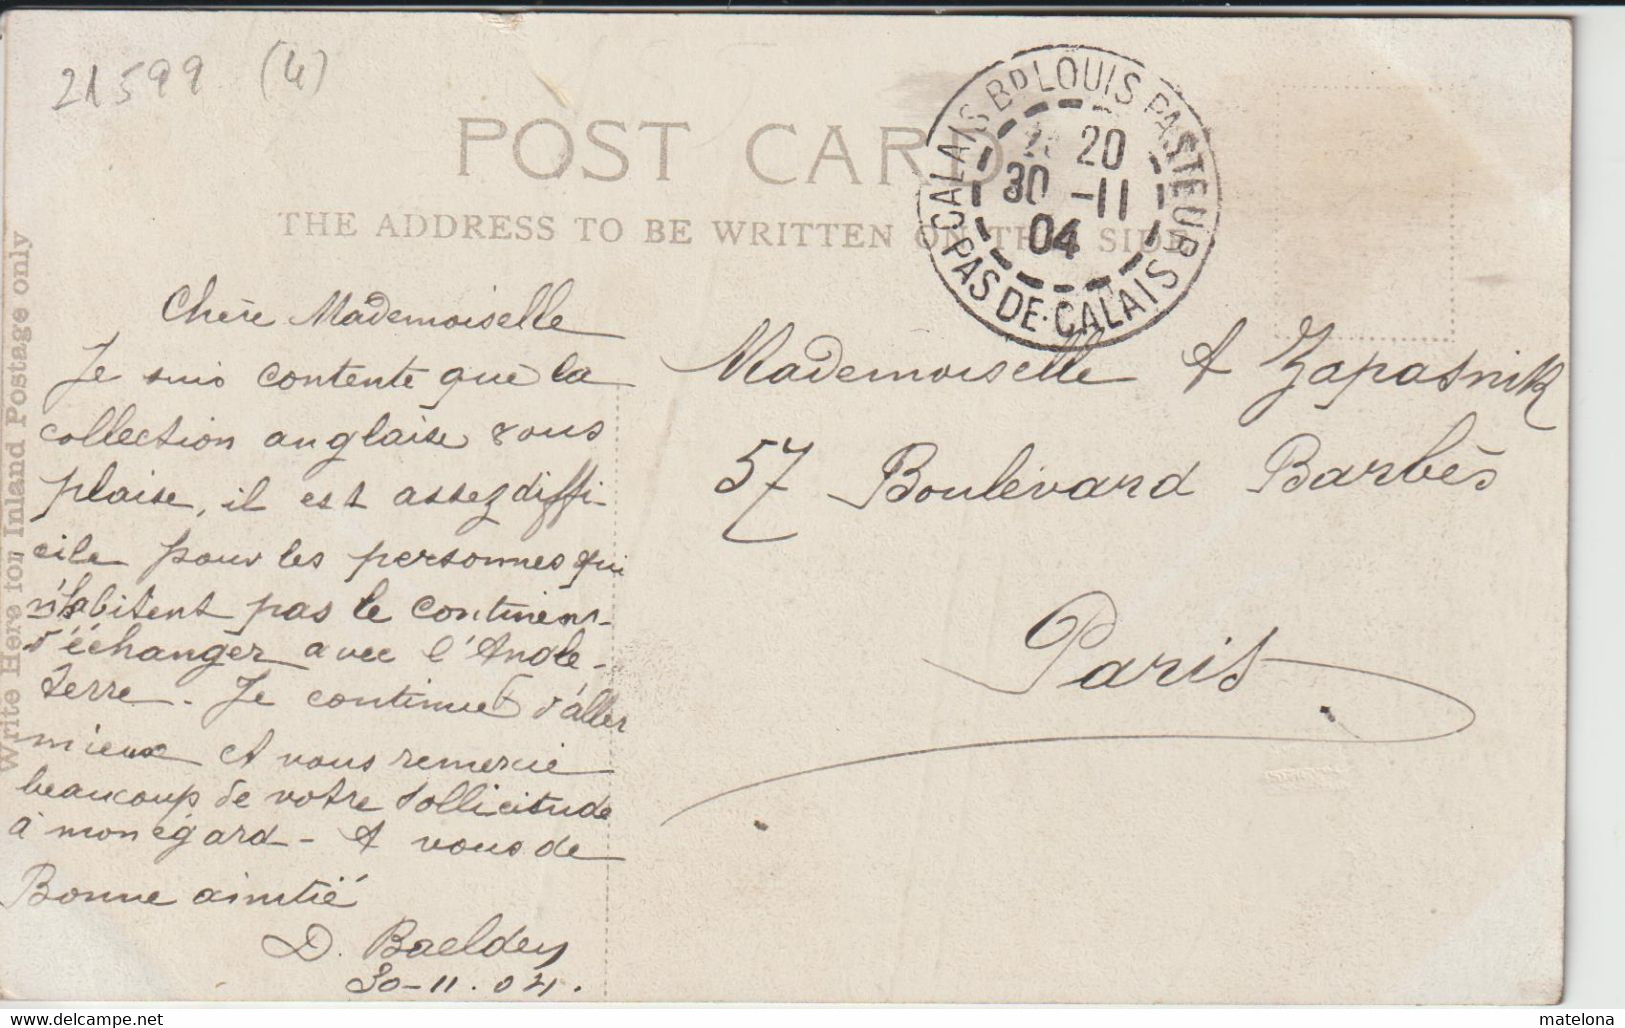 21599 (4)
POST CARD
THE ADDRESS TO BE WRITTEN ON THIS SIDE
Write Here for Inland Postage only
CALAIS BD LOUIS PASTEUR
20
30 -11
04
PAS DE-CALAIS
Chère Mademoiselle
Je suis contente que la
collection anglaise vous
plaise, il est assez diffi-
cile pour les personnes qui
n'habitent pas le continent
d'échanger avec l'Angle-
terre. Je continue d'aller
mieux et vous remercie
beaucoup de votre sollicitude
à mon égard - A vous de
Bonne aimitié
D. Baelden
30-11.04.
Mademoiselle A Zapasnik
57 Boulevard Barbès
Paris
delcampe.net
matelona